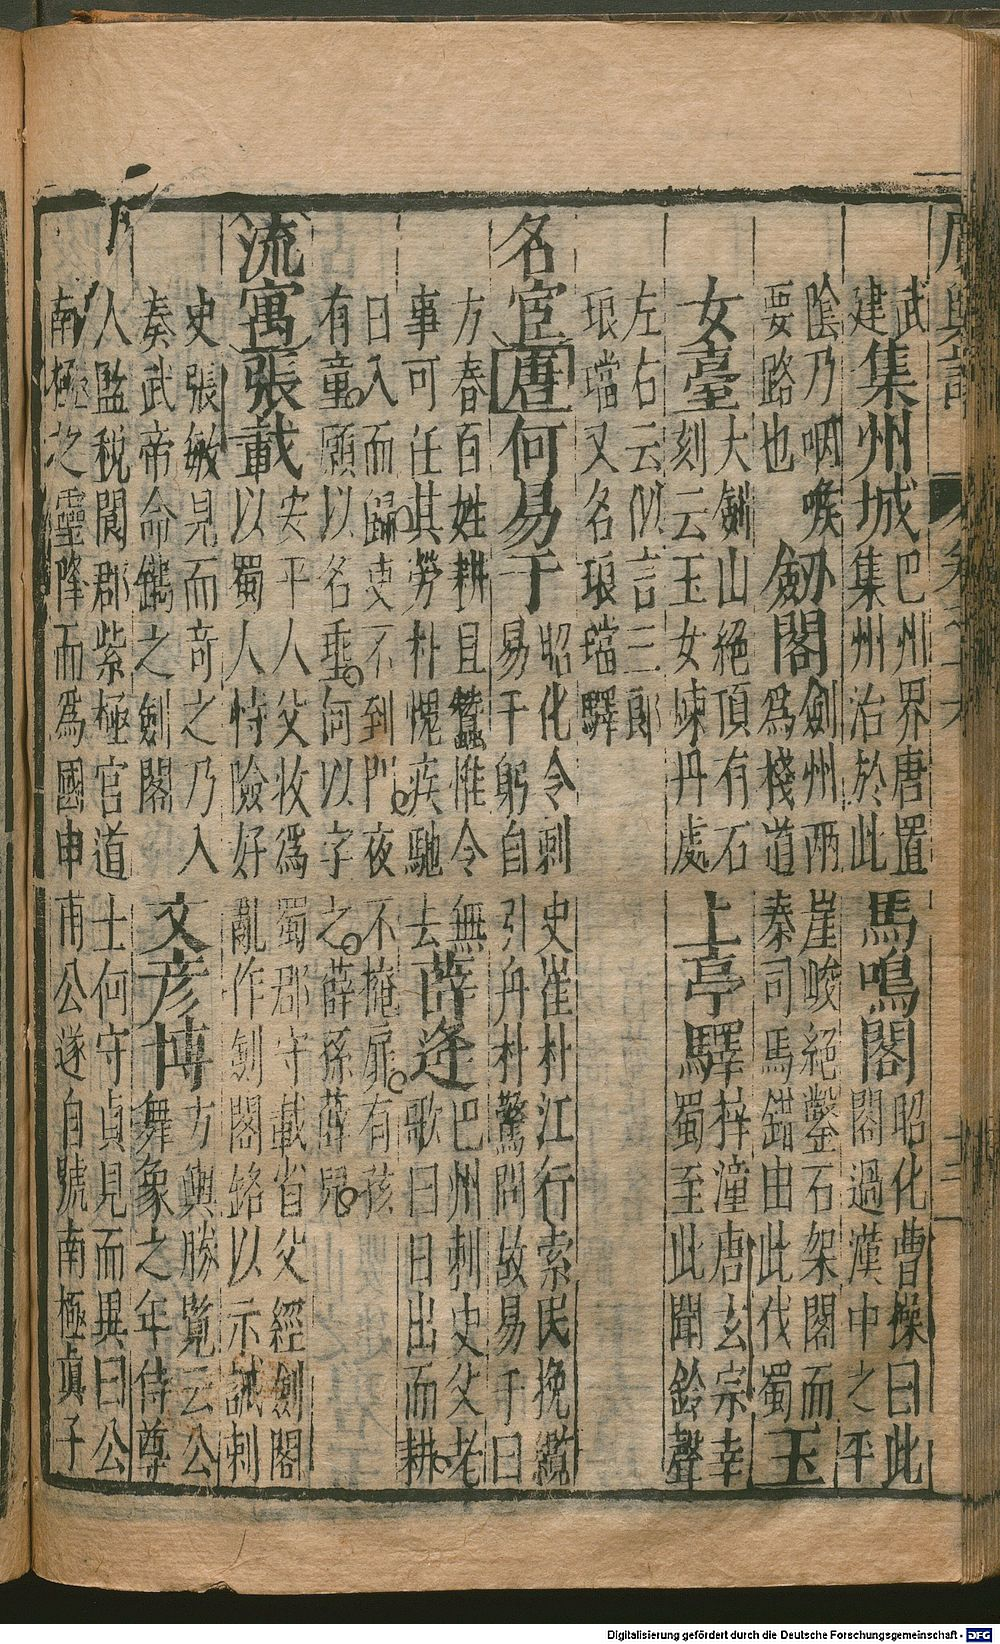 廣輿記 卷之十六 十三
武建集州城巴州界唐置集州治於此馬鳴閣昭化曹操曰此閣過漢中之平
陰乃咽喉要路也劒閣劍州兩崖峻絕鑿石架閣而爲棧道秦司馬錯由此伐蜀玉
女臺大劍山絕頂有石刻云玉女煉丹處上亭驛梓潼唐玄宗幸蜀至此聞鈴聲
左右云似言三郎琅璫又名琅璫驛
名宦唐何易于昭化令刺史崔朴江行索民挽纜易于躬自引舟朴驚問故易于曰
方春百姓耕且蠶惟令無事可任其勞朴愧疾馳去薛逢巴州刺史父老歌曰日出而耕
日入而歸吏不到門夜不掩扉有孩有童願以名垂何以字之薛孫薛兒
流寓張載安平人父收爲蜀郡守載省父經劍閣以蜀人恃險好亂作劍閣銘以示誡刺
史張敏見而奇之乃入奏武帝命鐫之劍閣文彥博方輿勝覽云公舞象之年侍尊
人監稅閬郡紫極宮道士何守貞見而異曰公南極之靈降而爲國申甫公遂自號南極眞子
Digitalisierung gefördert durch die Deutsche Forschungsgemeinschaft - DFG